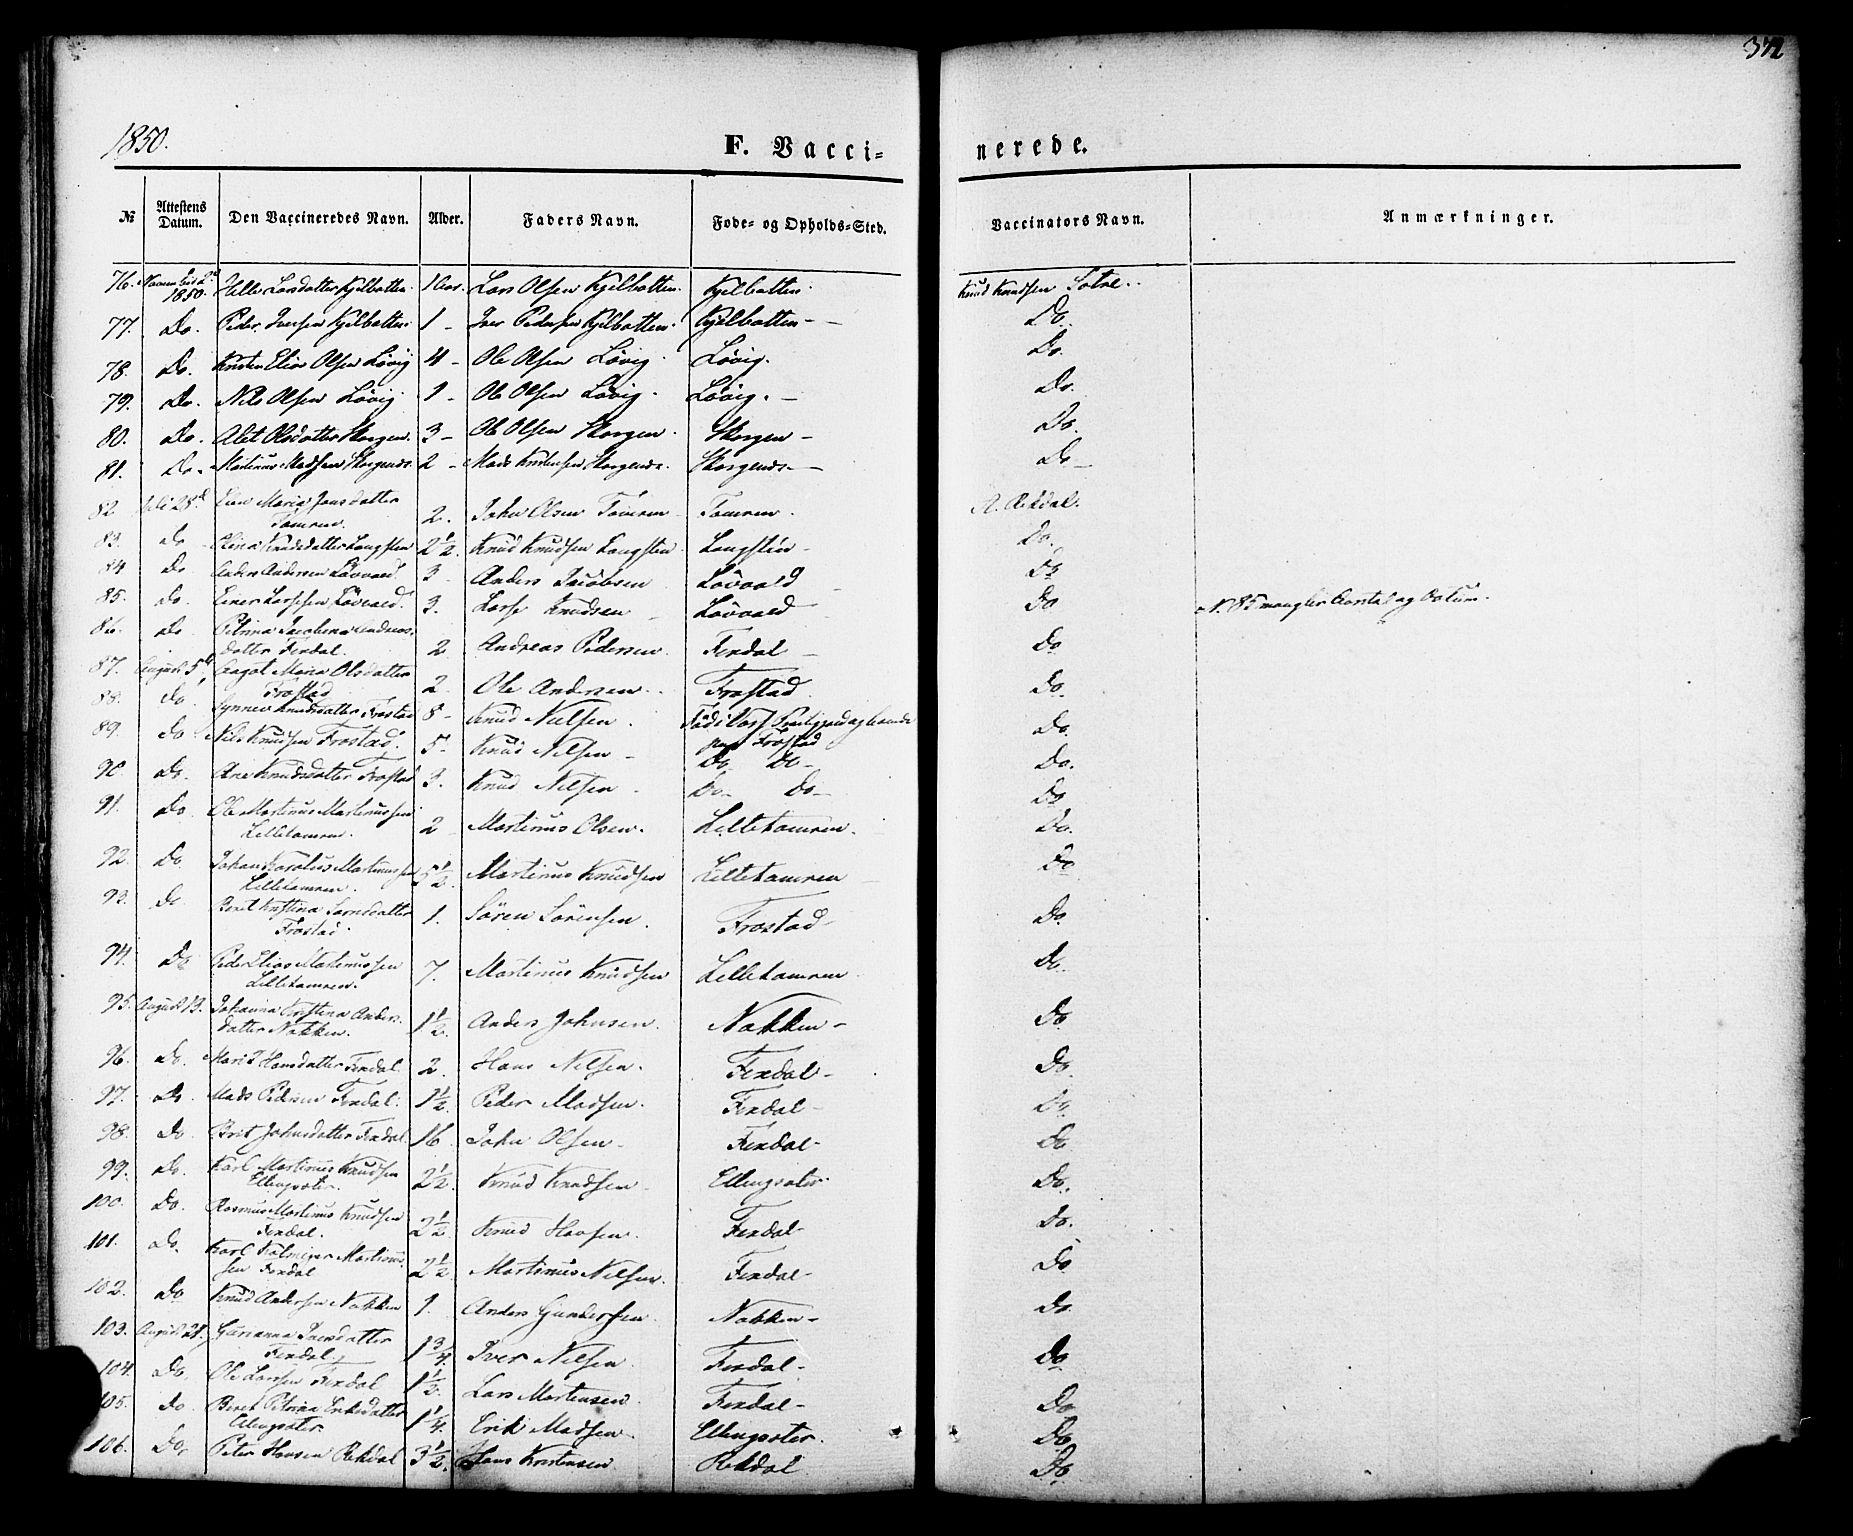 372
1850.
F. Vacci= nerede.
№ Attestens Datum. Den Vaccineredes Navn. Alder. Faders Navn. Føde= og Opholds=Sted. Vaccinators Navn. Anmærkninger.
76. 1850. Larsdatter Kjelbotten. 1 Lars Olsen Kjelbotten. Kjelbotten. Knud Knudsen Sætre.
77. Do. Peder Iversen Kjelbotten. 1 - Iver Pedersen Kjelbotten. Kjelbotten - Do.
78. Do. Kristen Elias Olsen Løvig 4 - Ole Olsen Løvig. Løvig. Do.
79. Do. Nils Olsen Løvig. 1 - Ole Olsen Løvig. Løvig. - Do.
80. Do. Alet Olsdatter Skorgen. 3 - Ole Olsen Skorgen. Skorgen - Do.
81. Do. Martinus Madsen 2 - Mads Kristensen Do
82. Juli 28d Elen Maria Jonsdatter
Tomren. 2. John Olsen Tomren Tomren. A. Rekdal.
83. do Knudsdatter Langsten 2½. Knud Knudsen Langsten Langsten - Do.
84 Do Anders Andersen Løvold. 3 Anders Jacobsen Løvold Do
85. do. Einer Larssen Løvold. 3. Lars Knudsen Løvold Do N. 85 mangler Aarstal og Datum.
86. do Petrina Jacobina Andreas-
datter Fixdal. 2 Andreas Pedersen Fixdal - Do
87. August 5te Aagot Maria Olsdatter
Frostad 2. Ole Andersen. Frostad. Do.
88. do. Synnev Knudsdatter Frostad 8 - Knud Nielsen. Fød i Præstegjeld og boende Do.
paa Frostad
89. do Nils Knudsen Frostad. 5. Knud Nilsen - Do Do - Do.
90. Do. Ane Knudsdatter Frostad 3. Knud Nilsen - Do - Do - Do
91. Do Ole Martinus Martinussen
Lilletomren. 2 Martinus Olsen. Lilletomren. Do.
92. Do Johan Karolus Martinussen
Lilletomren. 5½. Martinus Knudsen Lilletomren Do
93. do Berit Kristina Sørnsdatter
Frostad. 1. Søren Sørensen. Frostad - Do.
94. Do Peder Elias Martinussen
Lilletomren. 7. Martinus Knudsen Lilletomren Do.
95. August 13. Johanna Kristina Anders-
datter Nakken. 1½. Anders Johnsen. Nakken - Do
96. Do. Marit Hansdatter Fixdal. 2. Hans Nilsen. Fixdal - Do.
97. Do Mads Pedersen Fixdal. 1½. Peder Madsen. Fixdal - Do.
98. Do Brit Johnsdatter Fixdal 16. John Olsen - Fixdal - Do
99. Do. Karl Martinus Knudsen
Ellingsæter. 2½. Knud Knudsen - Ellingsæter. Do.
100. Do. Rasmus Martinus Knudsen
Fixdal. 2½. Knud Hansen. Fixdal - Do.
101. Do. Karl Martinus-
sen Fixdal 2½. Martinus Nilsen. Fixdal - Do
102. Do Knud Andersen Nakken 1. Anders Gundersen Nakken - Do
103. August 28. Iversdatter
Fixdal. 1¾. Iver Nilsen. Fixdal - Do
104. Do. Ole Larsen Fixdal 1½. Lars Mortensen. Fixdal - Do
105. do Berit Petrina Eriksdatter
Ellingsæter 1¼. Erik Madsen. Ellingsæter. Do
106. Do, Peter Hansen Rekdal 3½. Hans Kristensen Rekdal Do